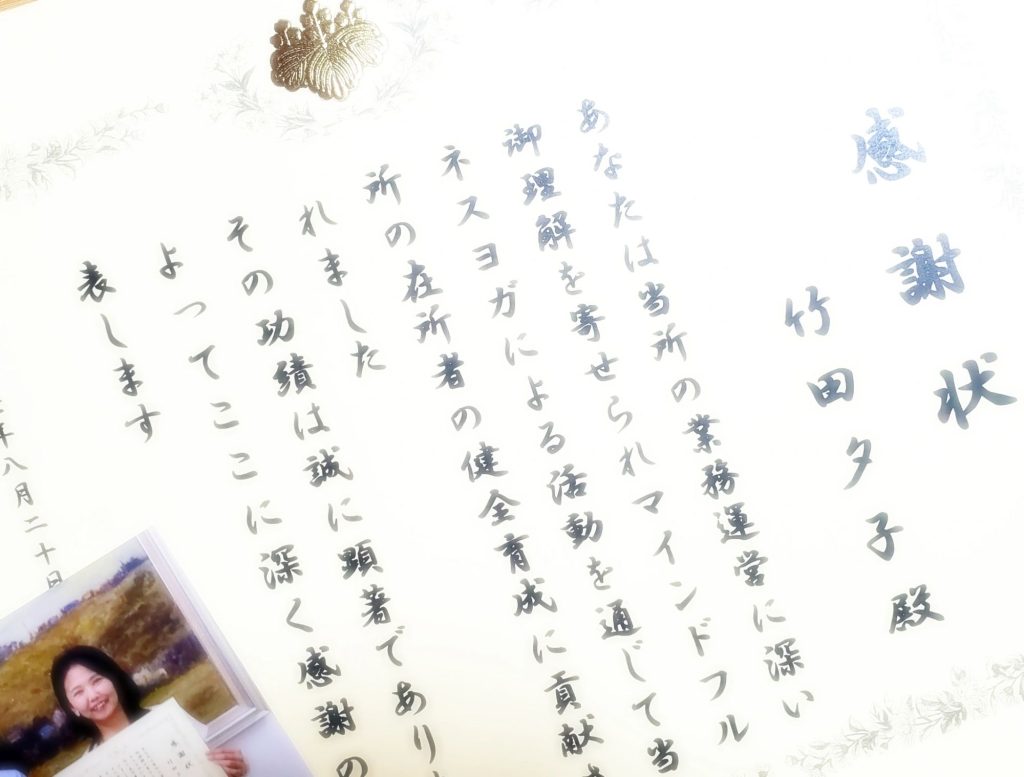 感謝状
竹田夕子殿
あなたは当所の業務運営に深い
御理解を寄せられマインドフル
ネスヨガによる活動を通じて当
所の在所者の健全育成に貢献
れました
その功績は誠に顕著であり
よってここに深く感謝の
表します
年八月二十日
感謝状